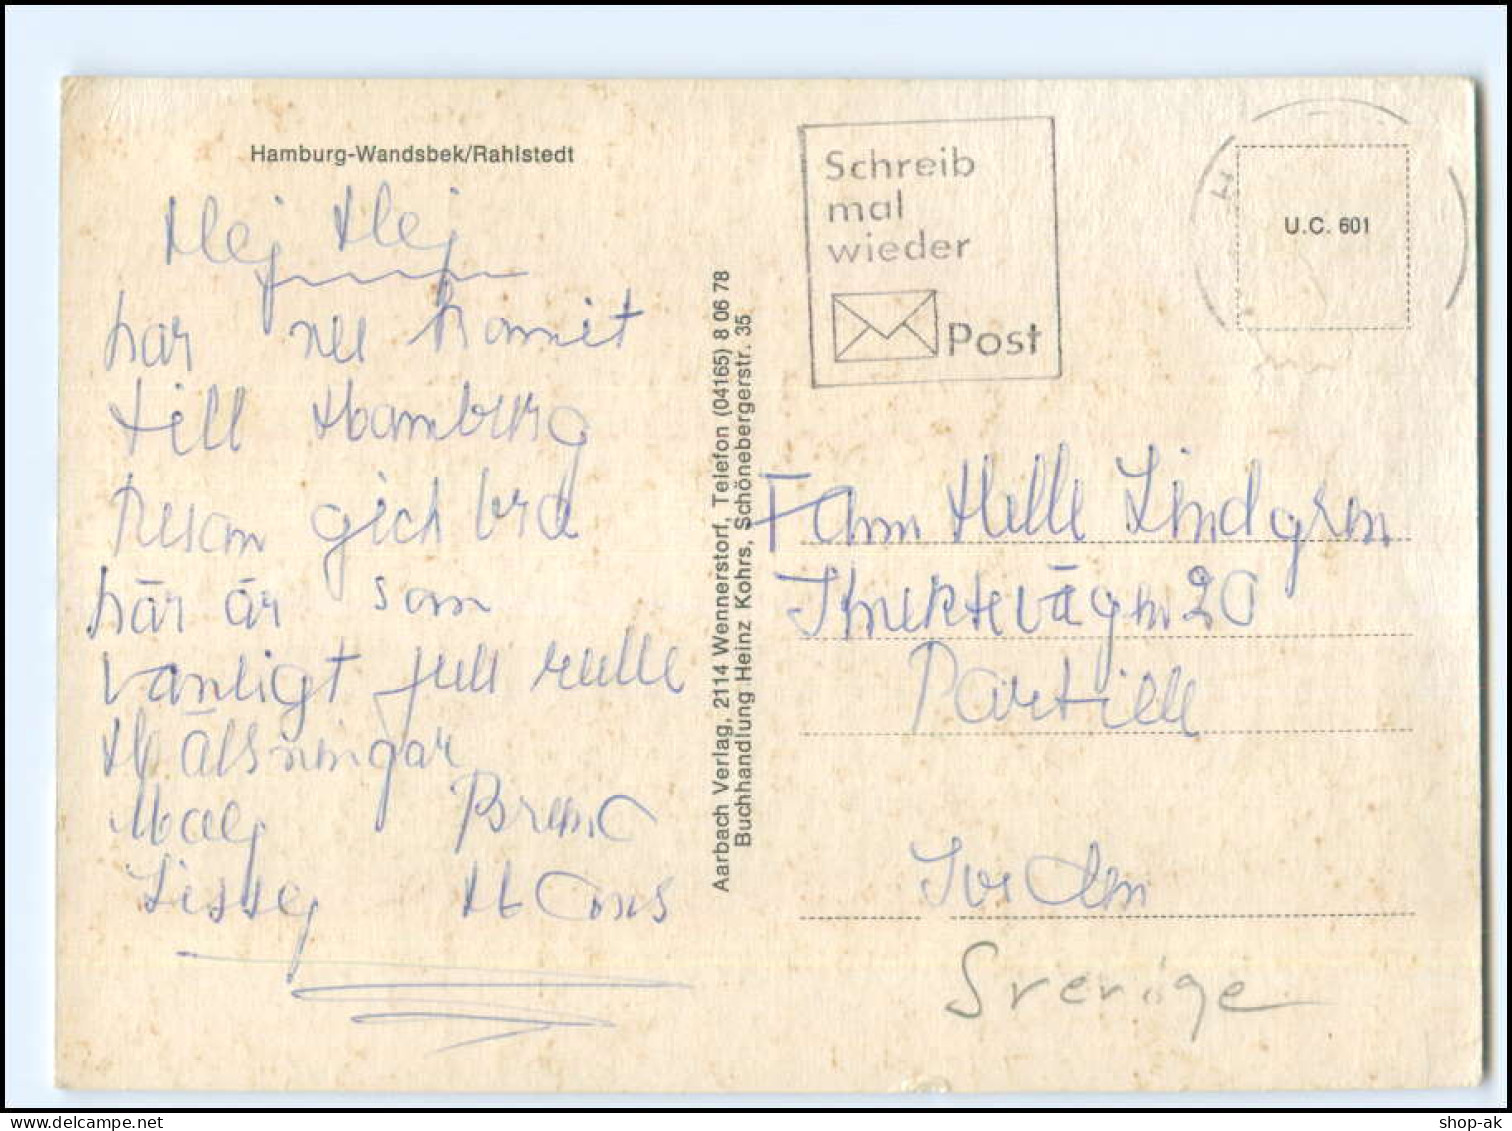 Hamburg-Wandsbek/Rahlstedt
Hej Hej
har nu komit
till Hamburg
resan gick bra
här är som
vanligt full rulle
Hälsningar
Lissy
Aarbach Verlag, 2114 Wennerstorf, Telefon (04165) 8 06 78
Buchhandlung Heinz Kohrs, Schönebergerstr. 35
Schreib
mal
wieder
Post
U.C. 601
Fam Helle Lindgren
20
Partille
Sverige
shop-ak